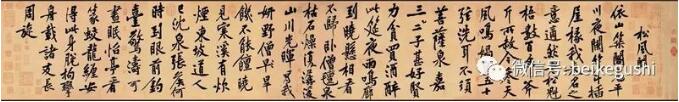 松風閣
依山築閣見平
川夜闌箕斗插
屋椽我來名之
意適然老松魁
梧數百年斧
斤所赦今參天
風鳴媧皇五十
弦洗耳不須
菩薩泉嘉二
三子甚好賢
力貧買酒醉
此筵夜雨鳴廊
到曉懸相看
不歸臥僧氈泉
枯石燥復潺湲
山川光暉為我
妍野僧旱
饑不能饘曉
見寒溪有炊
煙東坡道人
已沈泉張侯何
時到眼前釣
臺驚濤可
晝眠怡亭看
篆蛟龍纏安
得此身脫拘攣
舟載諸友長
周旋
微信号: beikegushi